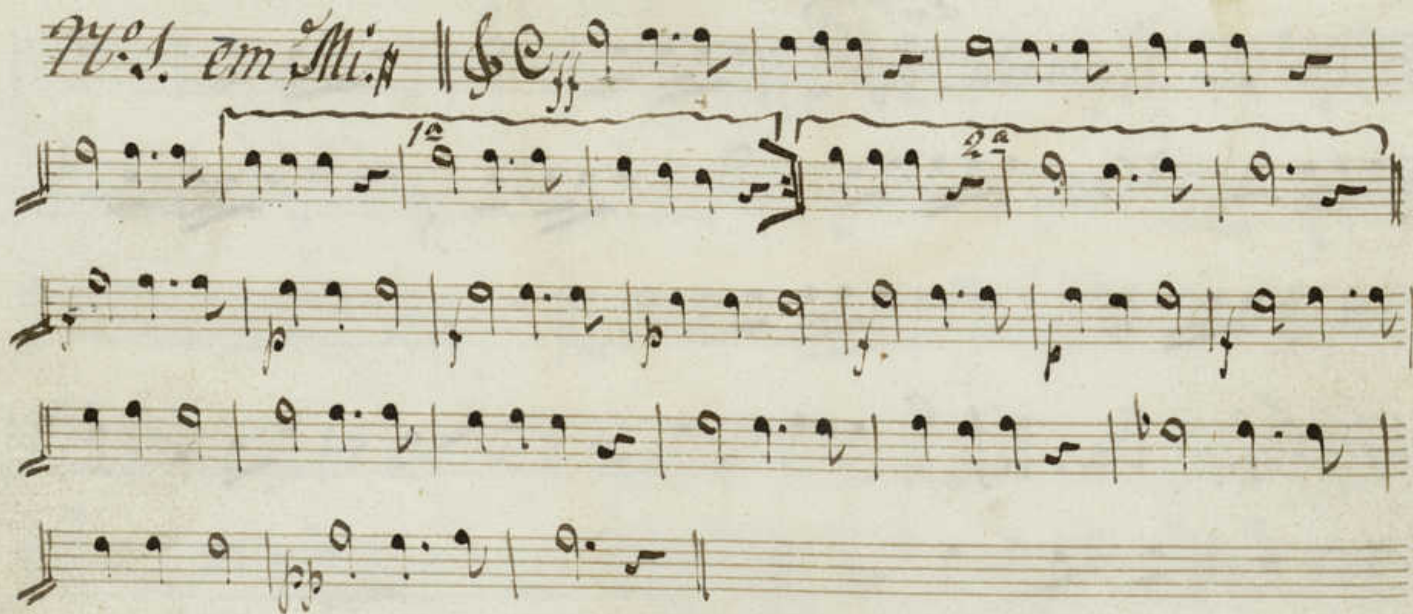 Nº 1. em Mi.# ff
1ª 2ª
f p f p f p f
pp